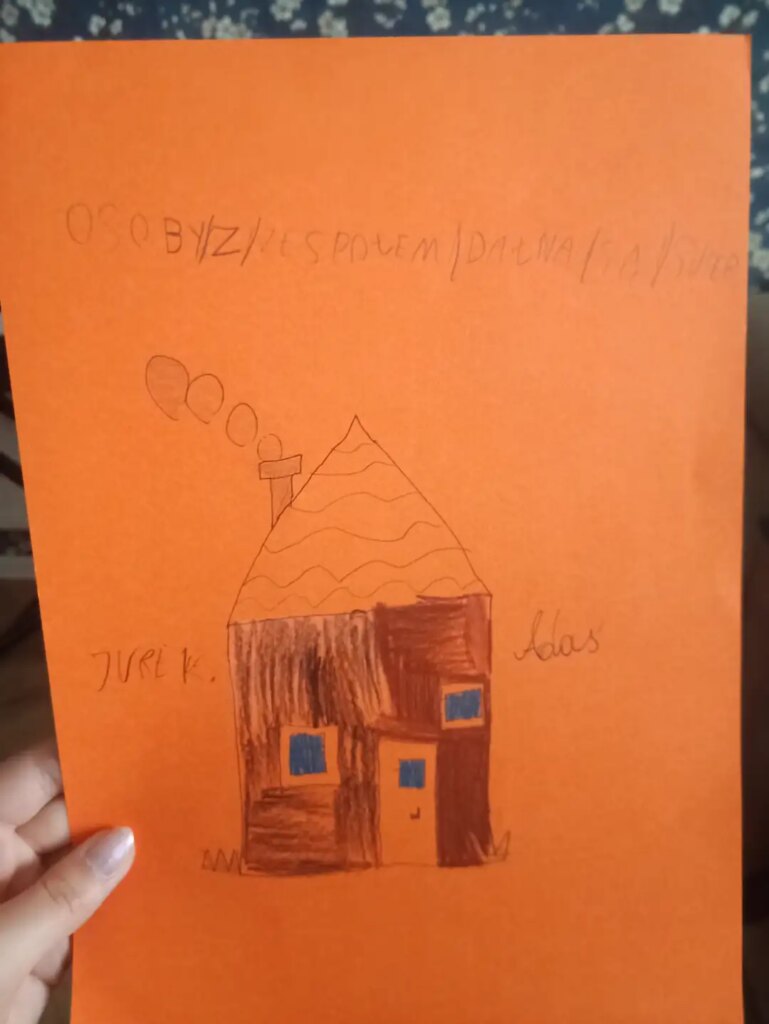 OSOBY/Z/ZESPOŁEM/DAŁNA/SĄ/SUPER
JUREK.
Adaś